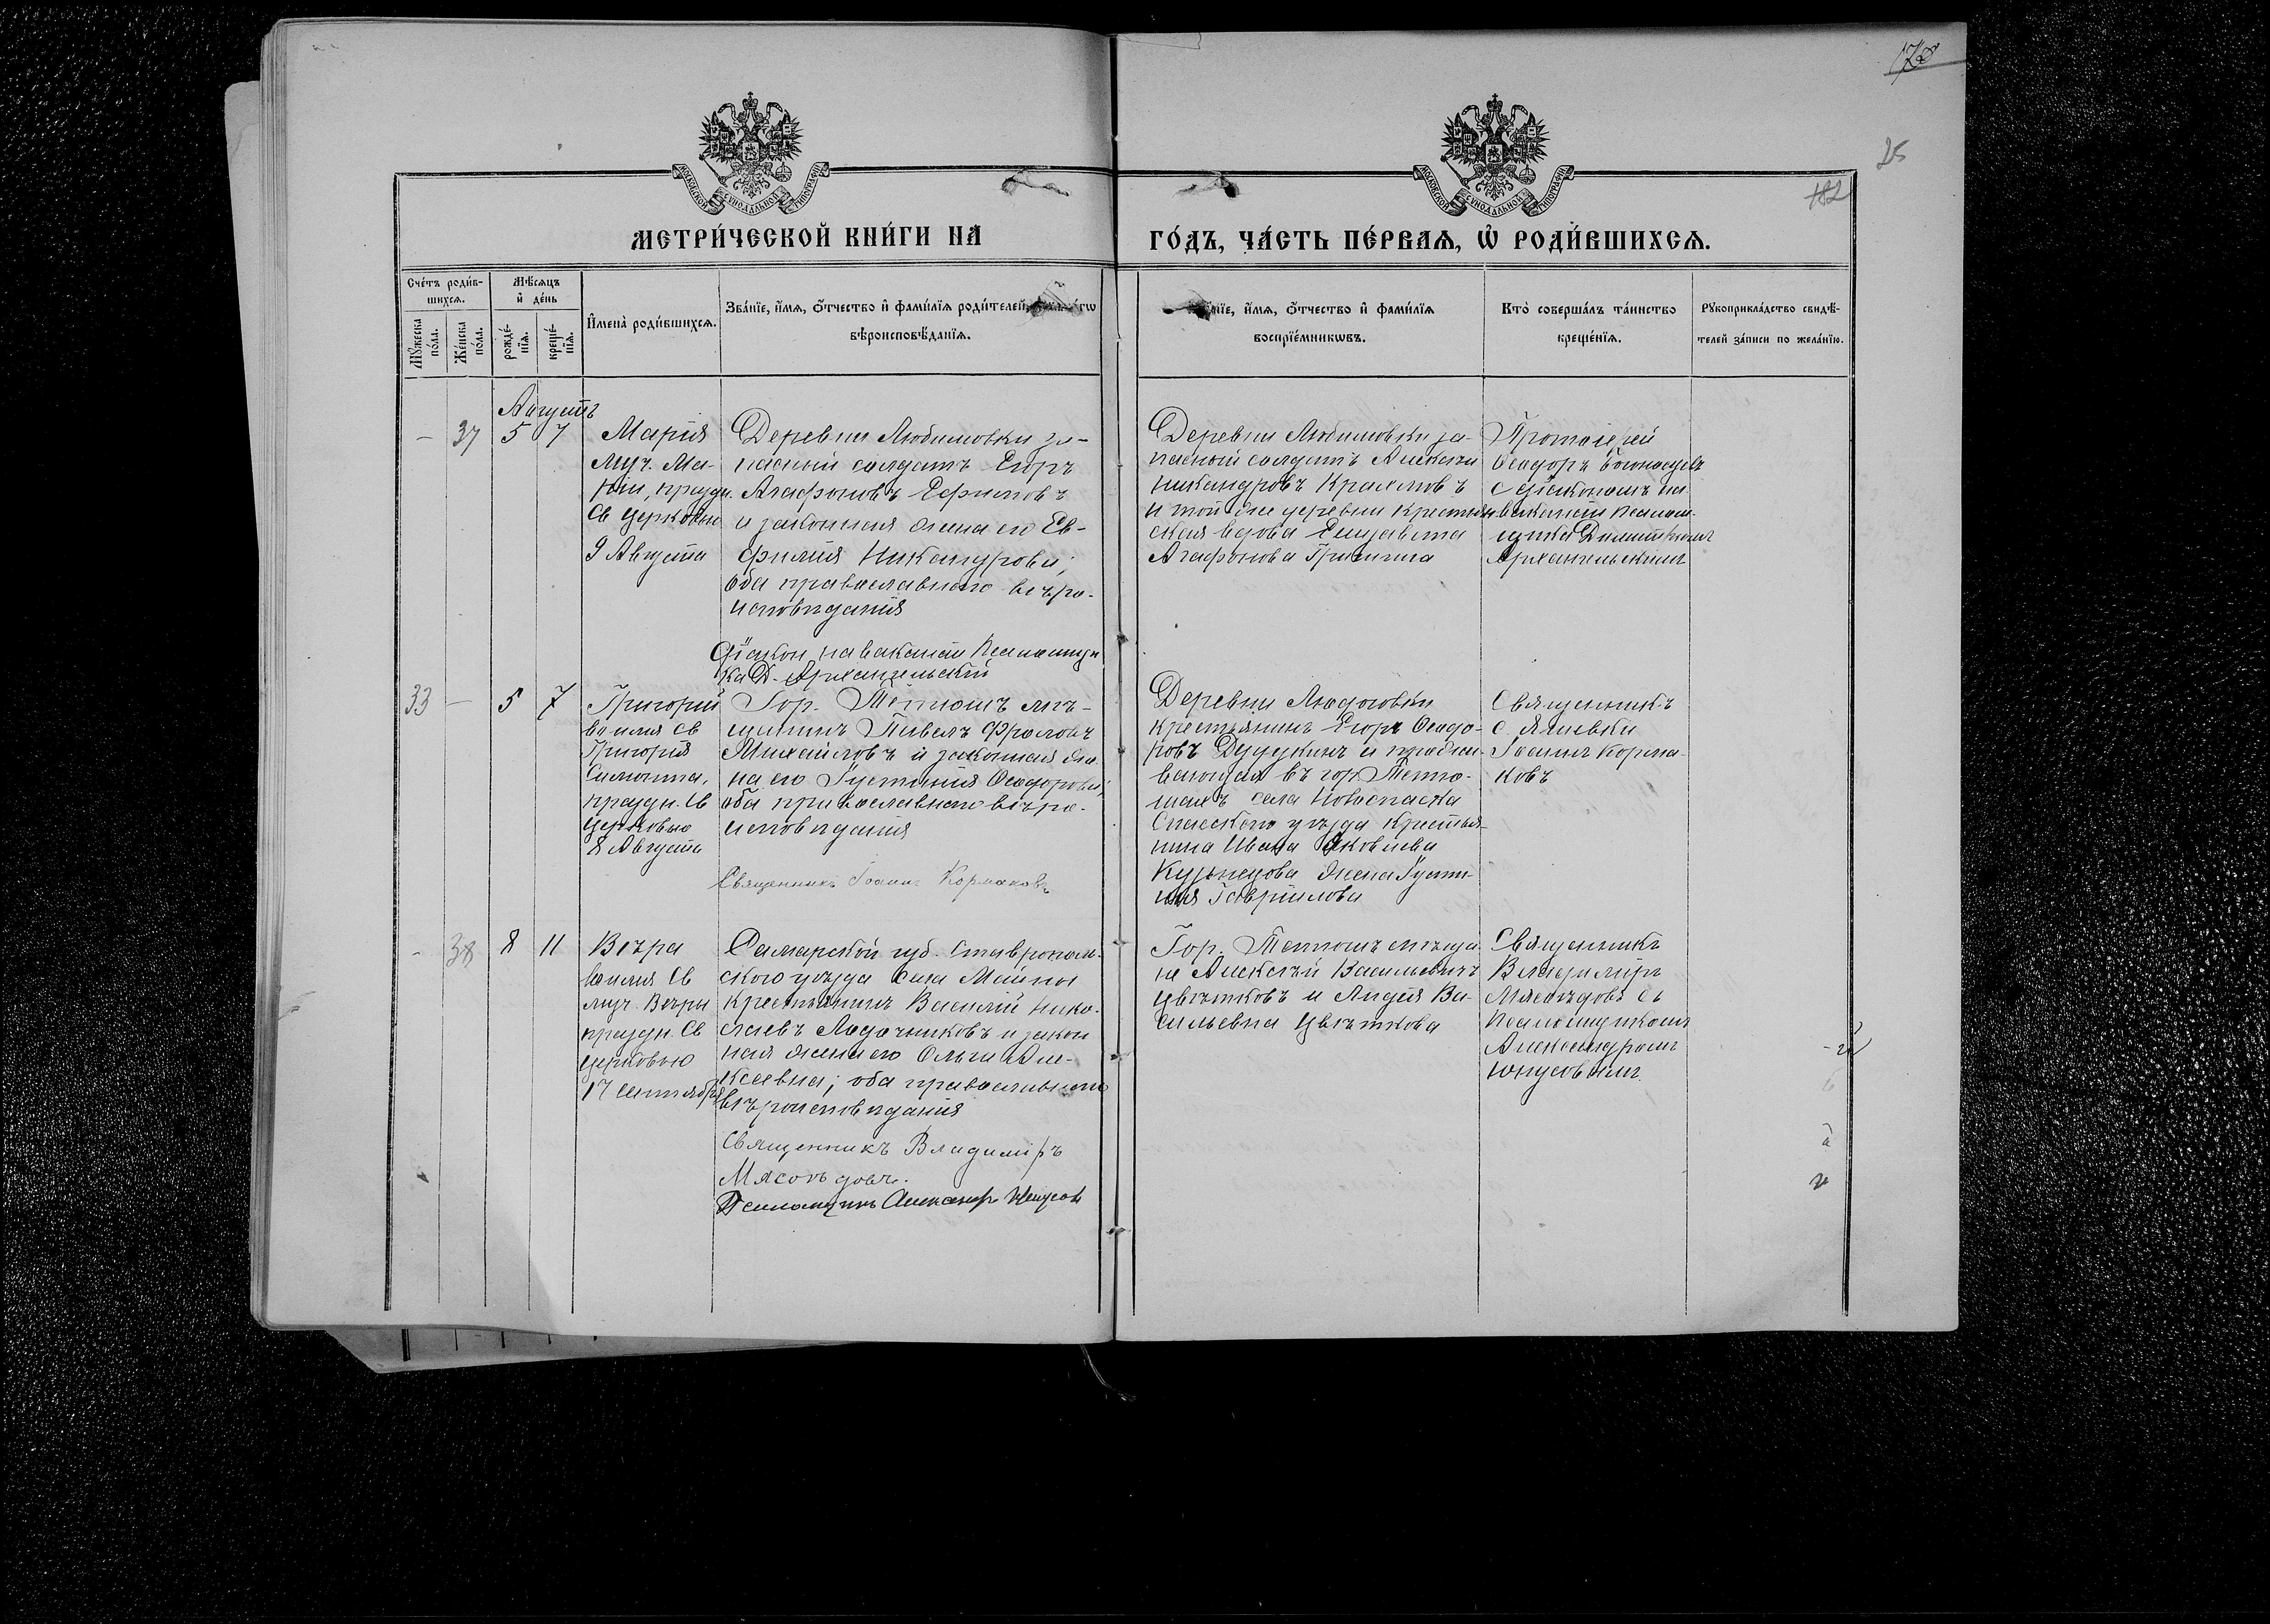 175
25
182
МОСКОВСКОЙ СѴНОДАЛЬНОЙ ТИПОГРАФІИ
МОСКОВСКОЙ СѴНОДАЛЬНОЙ ТИПОГРАФІИ
МЕТРИ́ЧЕСКОЙ КНИ́ГИ НА̀
ГО́ДЪ, ЧА́СТЬ ПЕ́РВАѦ, Ѡ҆ РОДИ́ВШИХСѦ.
Сче́тъ роди́в-
шихсѧ.
Мꙋ́жеска
по́ла.
Же́нска
по́ла.
Мѣ́сѧцъ
и҆ де́нь
рожде́-
нїѧ.
креще́-
нїѧ.
И҆мена̀ роди́вшихсѧ.
Зва́нїе, и҆́мѧ, ѻ҆́тчество и҆ фами́лїѧ роди́телей,
вѣроисповѣ́данїѧ.
и҆́мѧ, ѻ҆́тчество и҆ фами́лїѧ
воспрїе́мникѡвъ.
Кто̀ соверша́лъ та́инство
креще́нїѧ.
Рꙋкоприкла́дство свидѣ́-
телей за́писи по жела́нїю.
Августъ
- 37 5 7
Марія
муч. Ма-
ріи, праздн.
Св Церковью
9 Августа
Деревни Любимовки за-
пасный солдатъ Егоръ
Агафоновъ Ефимовъ
и законная жена его Ев-
фимія Никандрова;
оба православнаго вѣро-
исповѣданія
Діаконъ на вакансіи Псаломщи
ка Д. Архангельскій
Деревни Любимовки за-
пасный солдатъ Алексѣй
Никандровъ Крахмовъ
и той же деревни крестьян
ская вдова Елизавета
Агафонова Гришина
Протоіерей
Ѳеодоръ Богоносцевъ
с діакономъ на
вакансіи Псалом-
щика Димитріемъ
Архангельскимъ
33 - 5 7
Григорій
во имя Св
Григорія
Синаита,
праздн. Св
Церковью
8 Августа
Гор. Тетюшъ мѣ-
щанинъ Павелъ Фроловъ
Михайловъ и законная же
на его Іустинія Ѳеодорова;
оба православнаго вѣро-
исповѣданія
Священникъ Іоаннъ Кормаковъ
Деревни Людоговки
крестьянинъ Егоръ Ѳеодо-
ровъ Дудукинъ и прожи-
вающая въ гор. Тетю-
шахъ села Новоспаска
Спасскаго уѣзда крестья-
нина Ивана Яковлева
Кузнецова жена Іусти-
нія Гавриилова
Священникъ
с Ячшевки
Іоаннъ Корма-
ковъ
- 38 8 11
Вѣра
во имя Св
муч. Вѣры
праздн. Св
Церковью
17 сентября
Самарской губ. Ставрополь-
скаго уѣзда села Майны
крестьянинъ Василій Нико-
лаевъ Лодочниковъ и закон
ная жена его Ольга Але-
ксеевна; оба православнаго
вѣроисповѣданія
Священникъ Владиміръ
Мясоѣдовъ.
Псаломщикъ Александръ Юнусовъ
Гор. Тетюшъ мѣща
не Алексѣй Васильевичъ
Цвѣтковъ и Лидія Ва-
сильевна Цвѣткова
Священникъ
Владиміръ
Мясоѣдовъ съ
Псаломщикомъ
Александромъ
Юнусовымъ